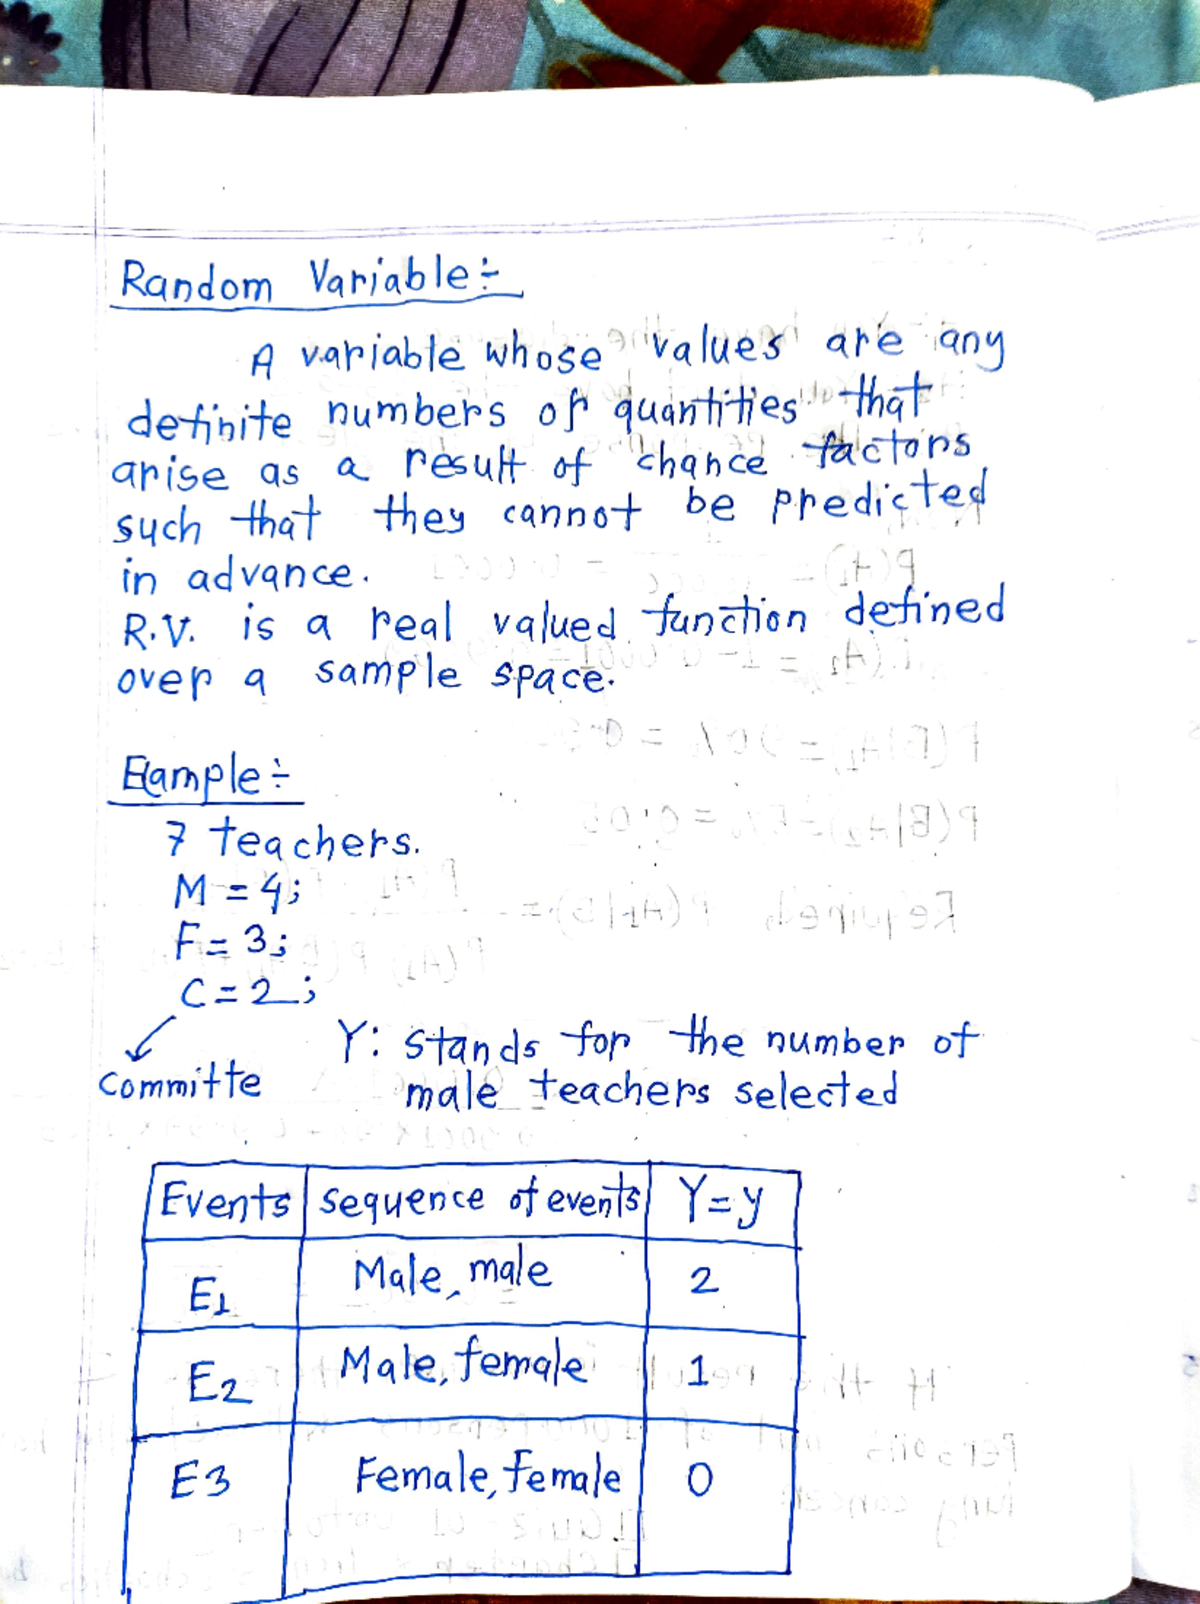 Random Variable:-
A variable whose values are any
definite numbers or quantities that
arise as a result of chance factors
such that they cannot be predicted
in advance.
R.V. is a real valued function defined
over a sample space.
Example:-
7 teachers.
M = 4;
F = 3;
C = 2;
Committe
Y: Stands for the number of
male teachers selected
Events sequence of events Y=y
E1 Male, male 2
E2 Male, female 1
E3 Female, female 0